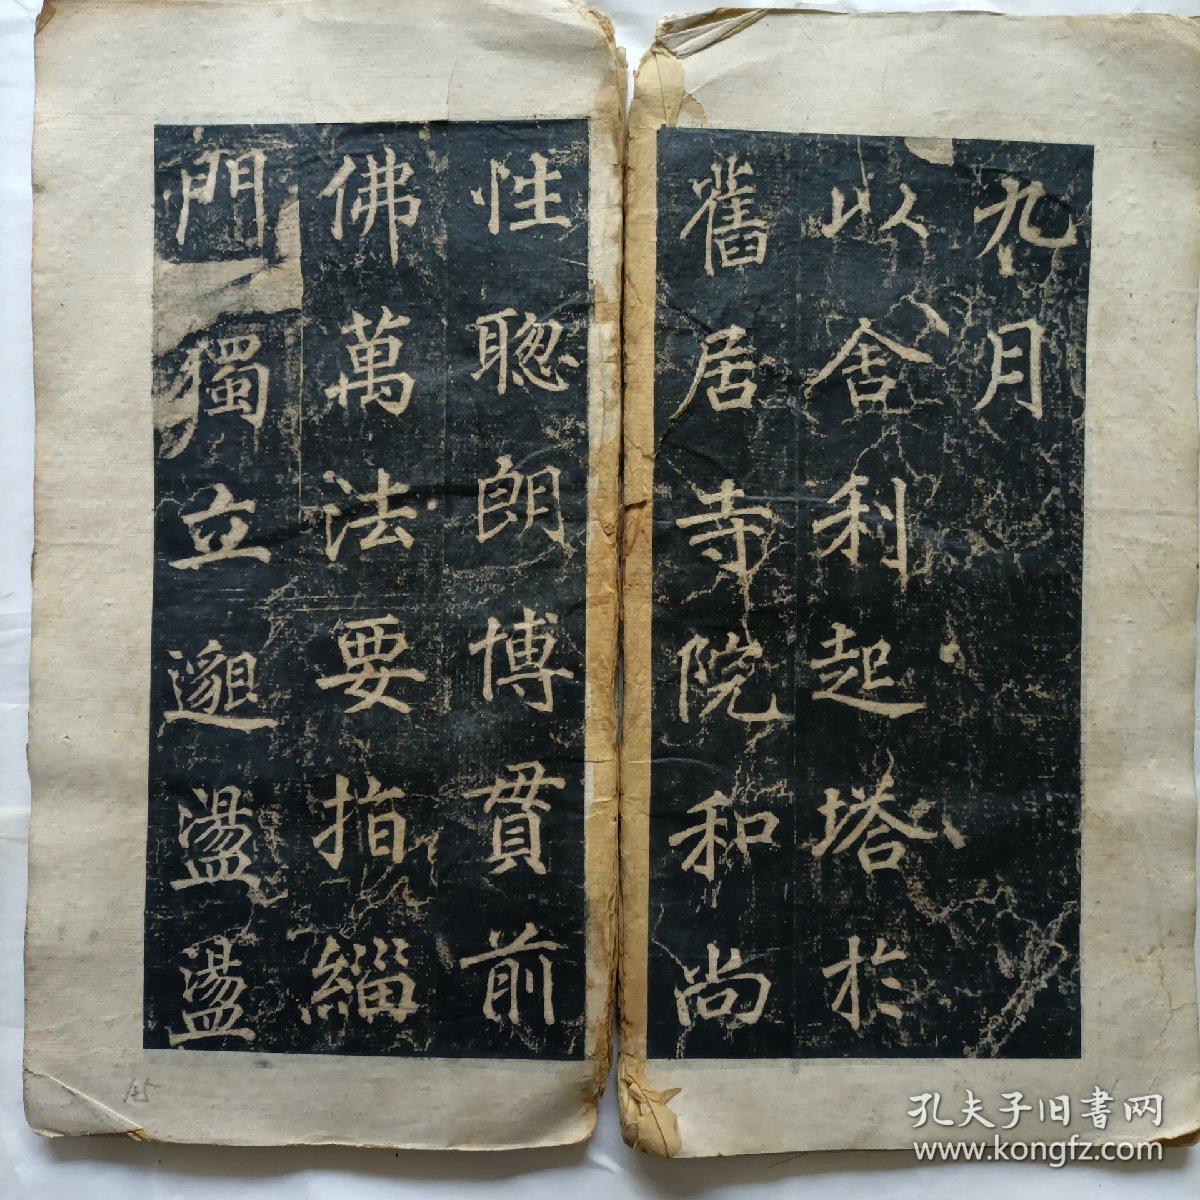 九月
以舍利起塔於
舊居寺院和尚
性聰朗博貫前
佛萬法要指緇
門獨立邈盪盪
125
孔夫子旧書网
www.kongfz.com